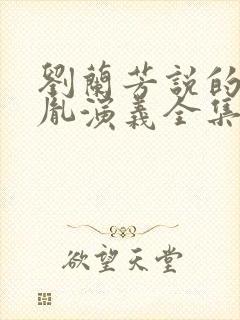 劉蘭芳説的
胤演義全集
欲望天堂